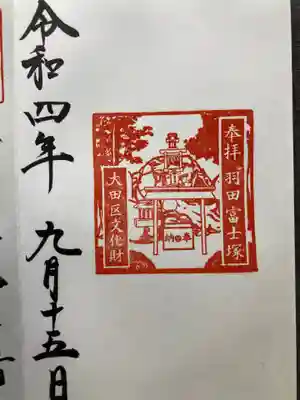 奉拝 羽田富士塚
大田区文化財
奉納
令和四年 九月十五日